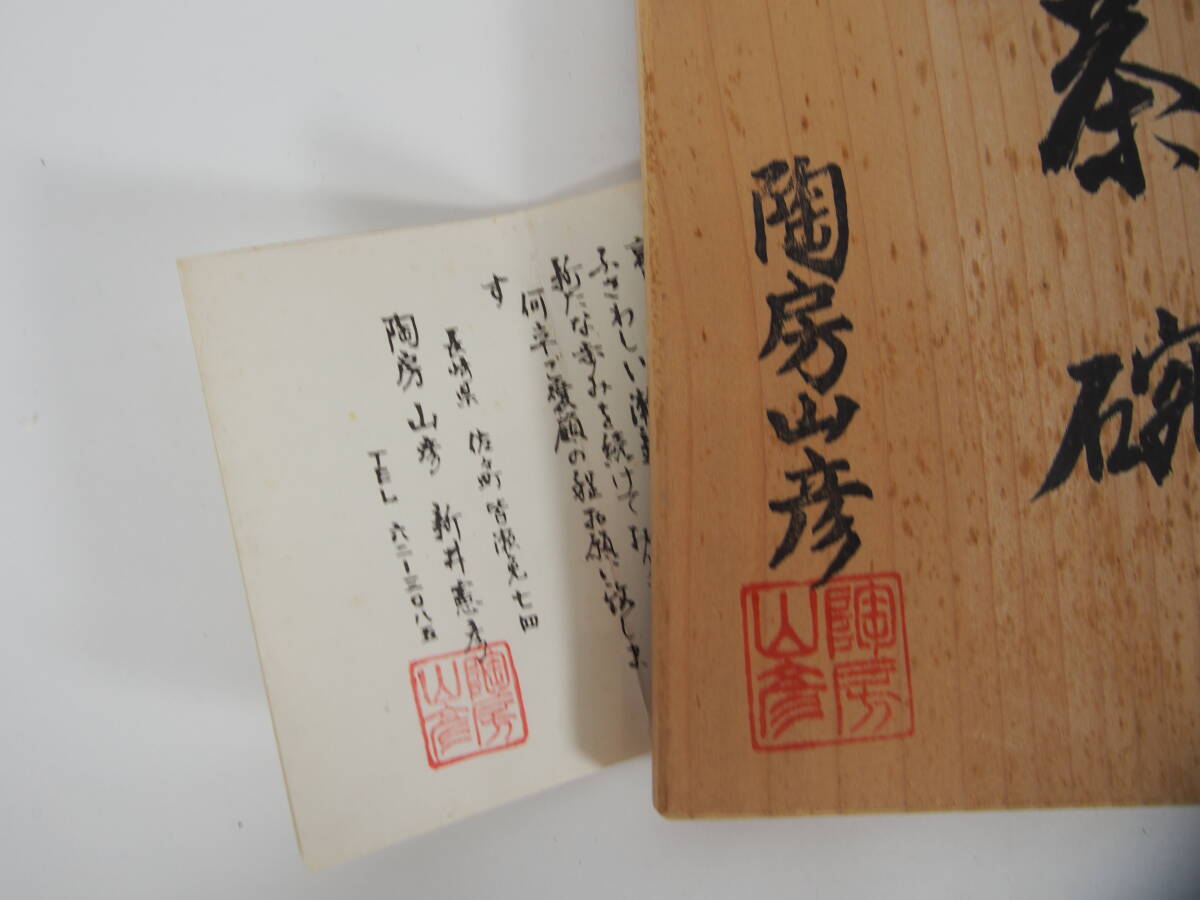 茶碗
陶房山彦
陶房
山彦
ふさわしい
新たな歩みを続けて
何卒ご愛顧の程お願い致しま
す
長崎県 佐々町皆瀬免七四
陶房 山彦 新井憲彦
TEL 六二-三〇八五
陶房
山彦